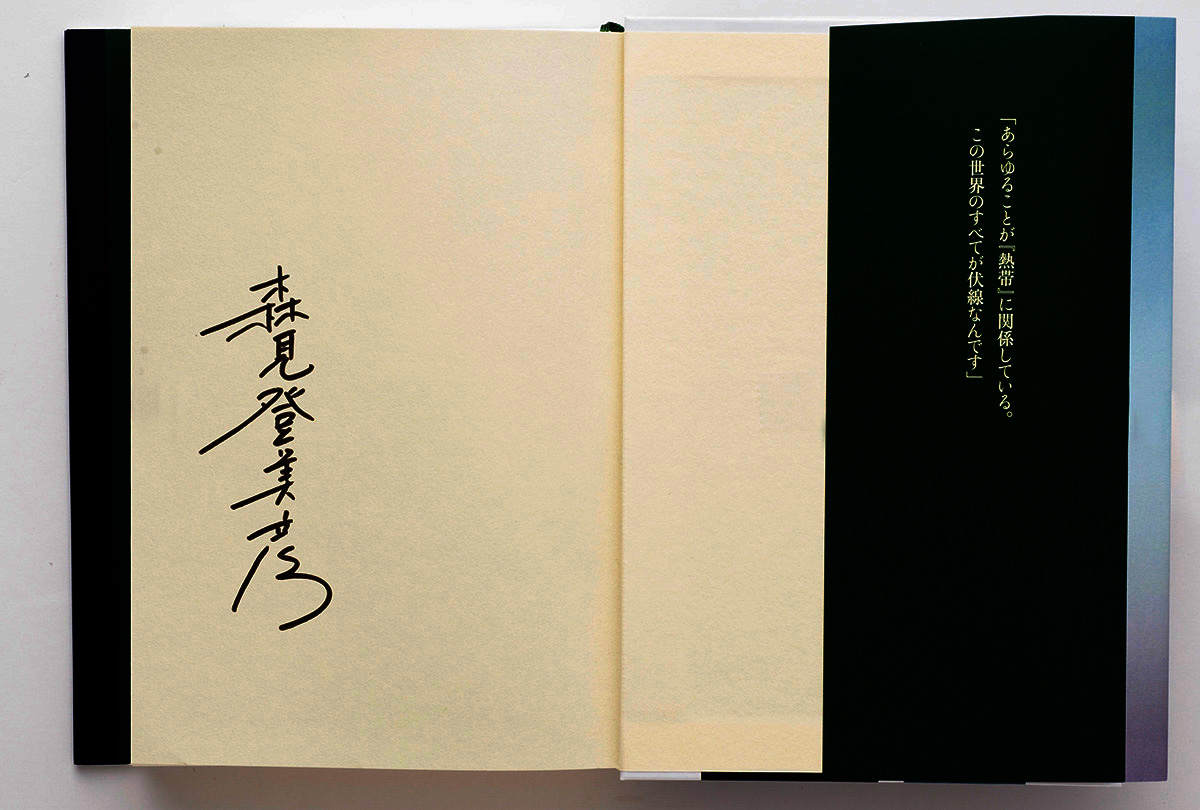 「あらゆることが『熱帯』に関係している。
この世界のすべてが伏線なんです」
森見登美彦